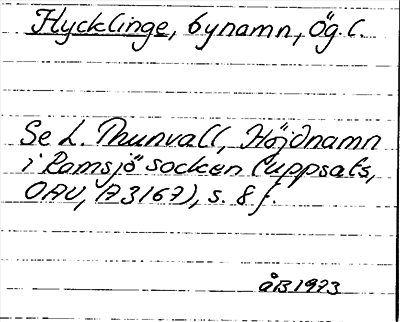 Hycklinge, bynamn, Ög.l.
Se L. Thunvall, Höjdnamn
i Ramsjö socken (uppsats,
OAU, A3167), s. 8 f.
ÅB1973